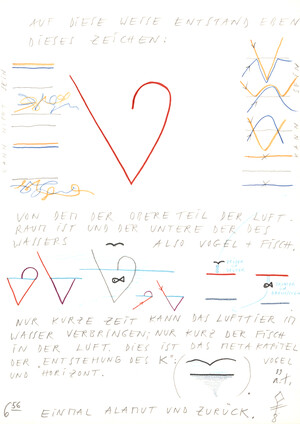 AUF DIESE WEISE ENTSTAND EBEN
DIESES ZEICHEN:
VON DEM DER OBERE TEIL DER LUFT-
RAUM IST UND DER UNTERE DER DES
WASSERS ALSO VOGEL + FISCH.
NUR KURZE ZEIT KANN DAS LUFTTIER IM
WASSER VERBRINGEN; NUR KURZ DER FISCH
IN DER LUFT. DIES IST DAS METAKAPITEL
DER "ENTSTEHUNG DES K": VOGEL
UND HORIZONT.
6 56 EINMAL ALAMUT UND ZURÜCK.